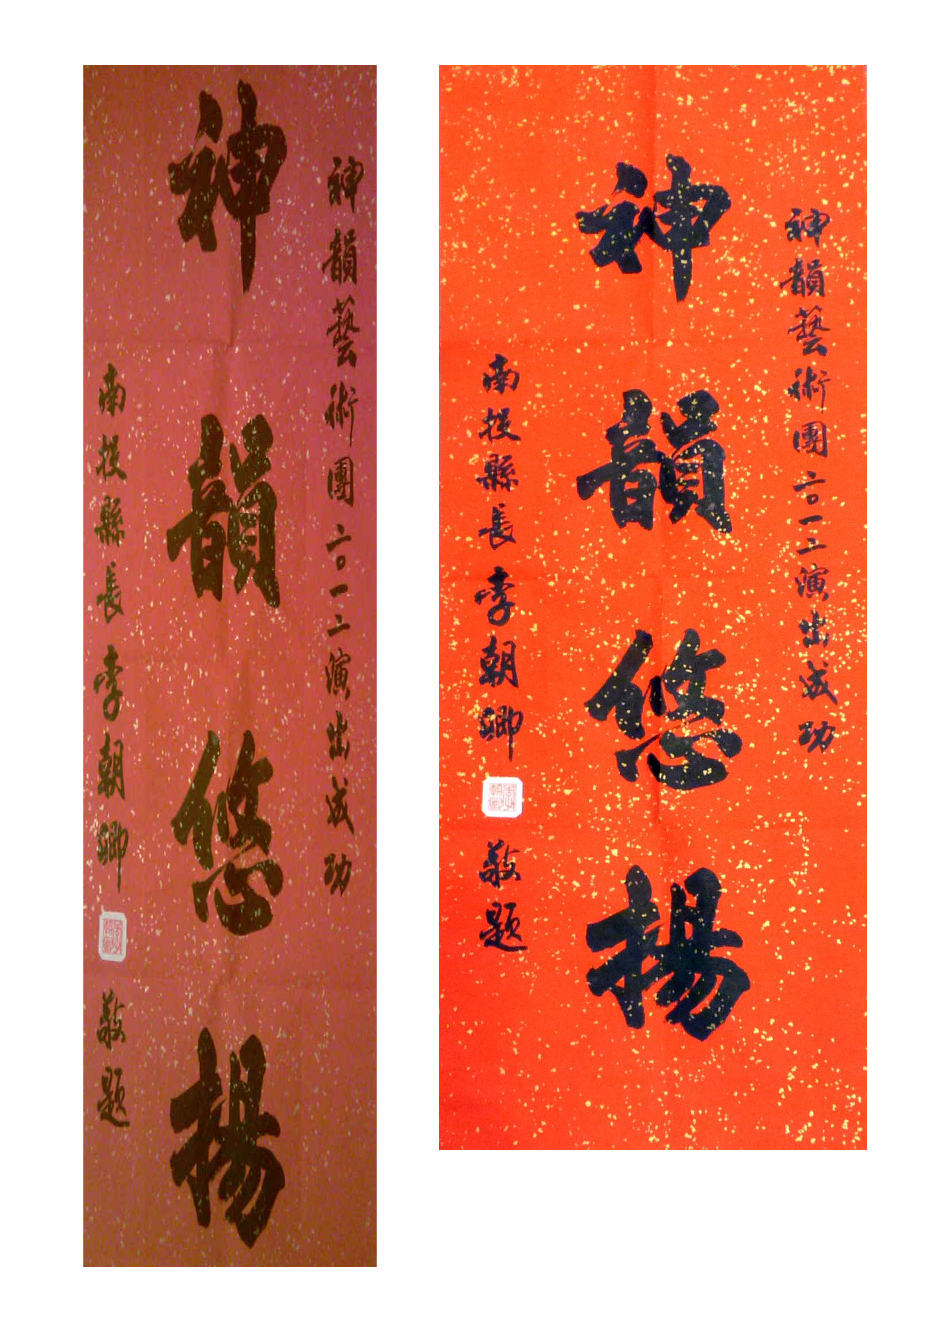 神韻藝術團二〇一二演出成功
神韻悠揚
南投縣長李朝卿敬題
神韻藝術團二〇一二演出成功
神韻悠揚
南投縣長李朝卿敬題